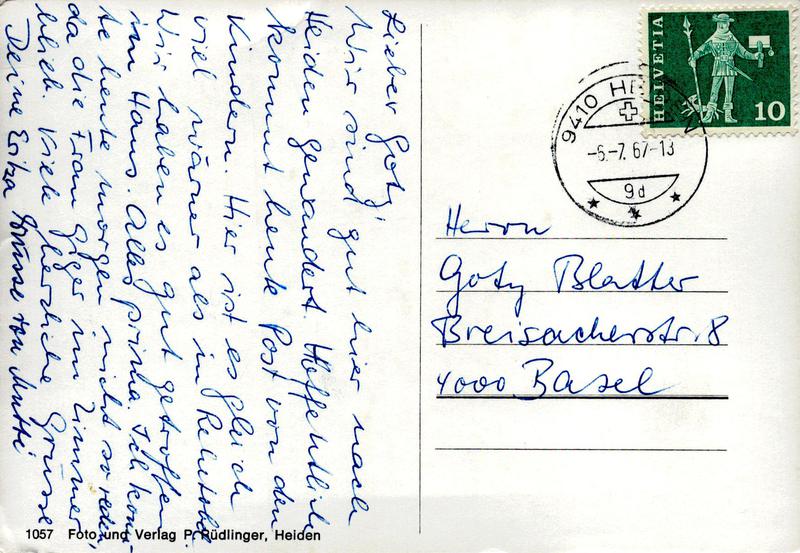 Lieber Goty,
Wir sind gut hier nach
Heiden gewandert. Hoffentlich
kommt heute Post von den
Kindern. Hier ist es gleich
viel wärmer als in Rehetobel.
Wir haben es gut getroffen
im Haus. Alles prima. Ich konn-
te heute morgen nicht so reden,
da die Frau Giger im Zimmer
blieb. Viele herzliche Grüsse
Deine Erika Grüsse von Mutti
1057 Foto und Verlag P. Rüdlinger, Heiden
HELVETIA
10
9410 HEIDEN
-6.-7.67-13
9d
Herrn
Goty Blatter
Breisacherstr. 8
4000 Basel